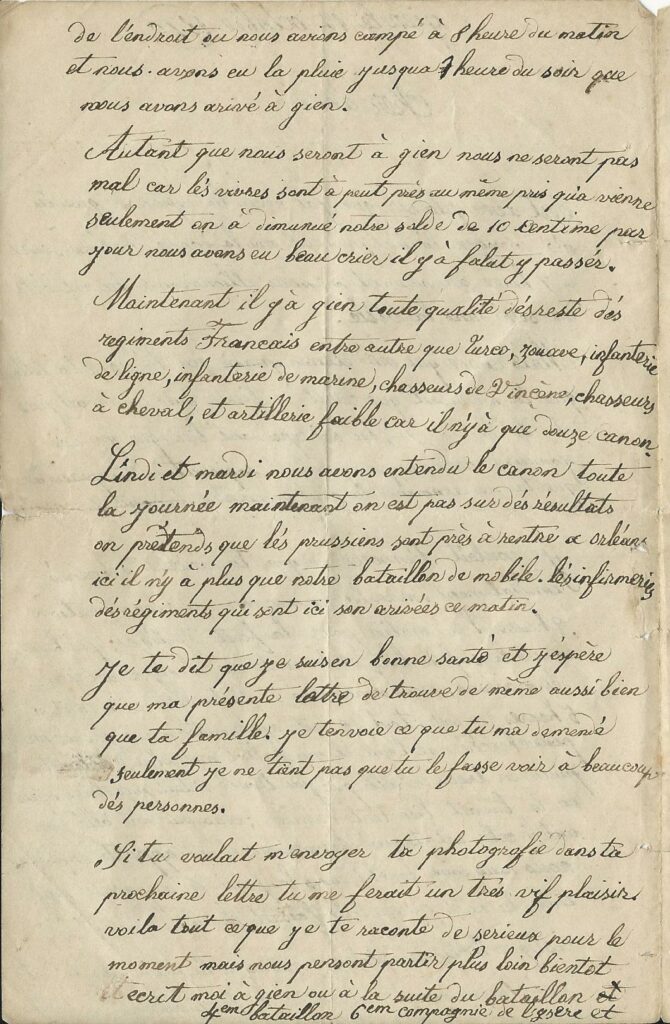 de l'endroit ou nous avions campé à 8 heure du matin
et nous avons eu la pluie jusqua 7 heure du soir que
nous avons arivé à gien.
Autant que nous seront à gien nous ne seront pas
mal car lés vivres sont à peut près au même pris qu'a vienne
seulement on à dimunué notre solde de 10 centime par
jour nous avons eu beau crier il y à falut y passér.
Maintenant il y à gien toute qualité dés reste dés
regiments Francais entre autre que Turco, zouave, infanterie
de ligne, infanterie de marine, chasseurs de Vincène, chasseurs
à cheval, et artillerie faible car il n'y à que douze canon.
Lindi et mardi nous avons entendu le canon toute
la journée maintenant on est pas sur dés résultats
on prétends que lés prussiens sont près à rentre a orléans
ici il n'y à plus que notre bataillon de mobile. lés infirmeries
dés régiments qui sont ici son arivées ce matin.
Je te dit que je suis en bonne santé et j'éspère
que ma présente lettre de trouve de même aussi bien
que ta famille. je tenvoie ce que tu ma demendé
seulement je ne tient pas que tu le fasse voir à beaucoup
dés personnes.
Si tu voulait m'envoyer ta photografie dans ta
prochaine lettre tu me ferait un très vif plaisir.
voila tout ce que je te raconte de serieux pour le
moment mais nous pensont partir plus loin bientot
Ecrit moi à gien ou à la suite du bataillon et
4em bataillon 6em compagnie de l'ysère et